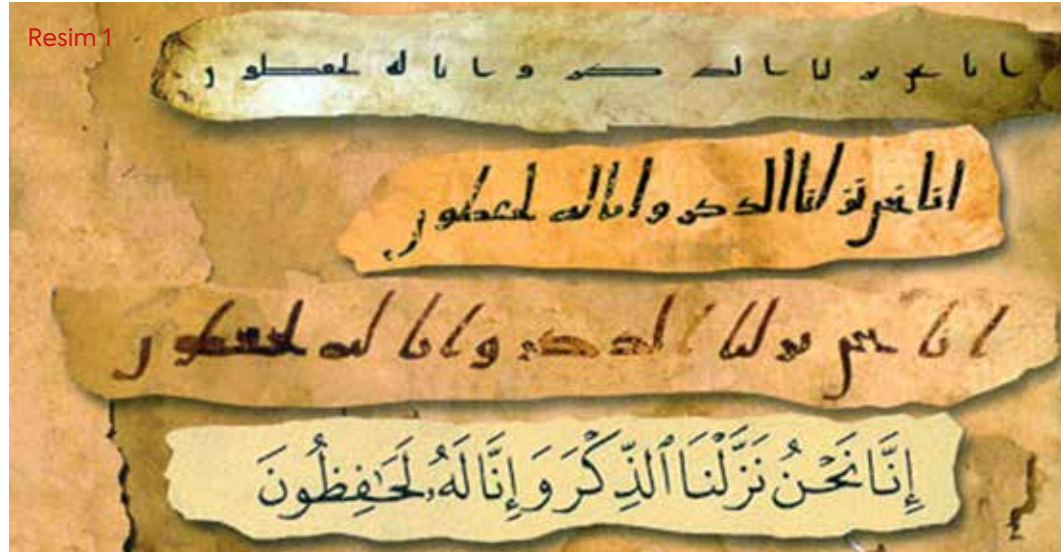 Resim 1
انا نحن نزلنا الذكر و انا له لحفظون
انا نحن نزلنا الذكر و انا له لحفظون
انا نحن نزلنا الذكر و انا له لحفظون
إِنَّا نَحْنُ نَزَّلْنَا ٱلذِّكْرَ وَإِنَّا لَهُۥ لَحَـٰفِظُونَ